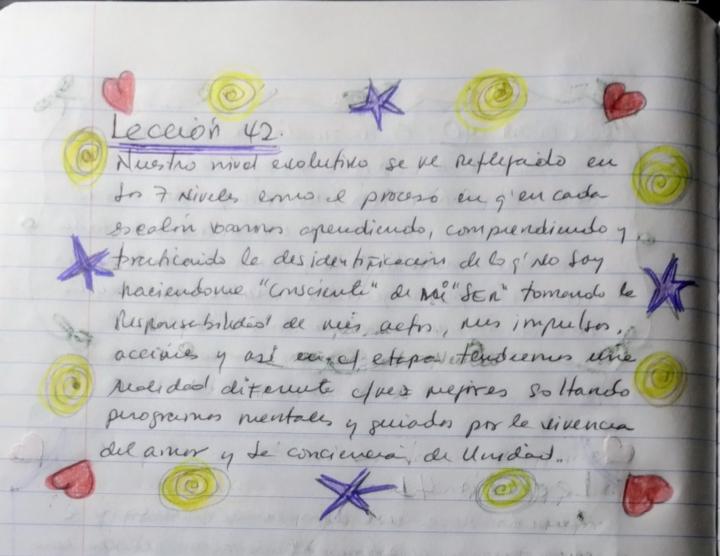 Lección 42.
Nuestro nivel evolutivo se ve reflejado en
los 7 Niveles como el proceso en q' en cada
escalón vamos aprendiendo, comprendiendo y
practicando la desidentificacion de lo q' No Soy
haciendome "Consciente" de Mi "SER" tomando la
Responsabilidad de mis actos, mis impulsos,
acciones y así en c/ etapa tendremos una
realidad diferente c/vez mejores soltando
programas mentales y guiados por la vivencia
del amor y la conciencia de Unidad..